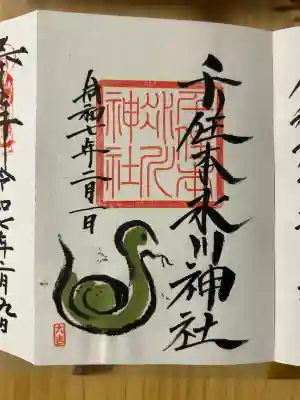 千住本氷川神社
千住本
氷川
神社
令和七年二月一日
大吉
令和七年二月九日